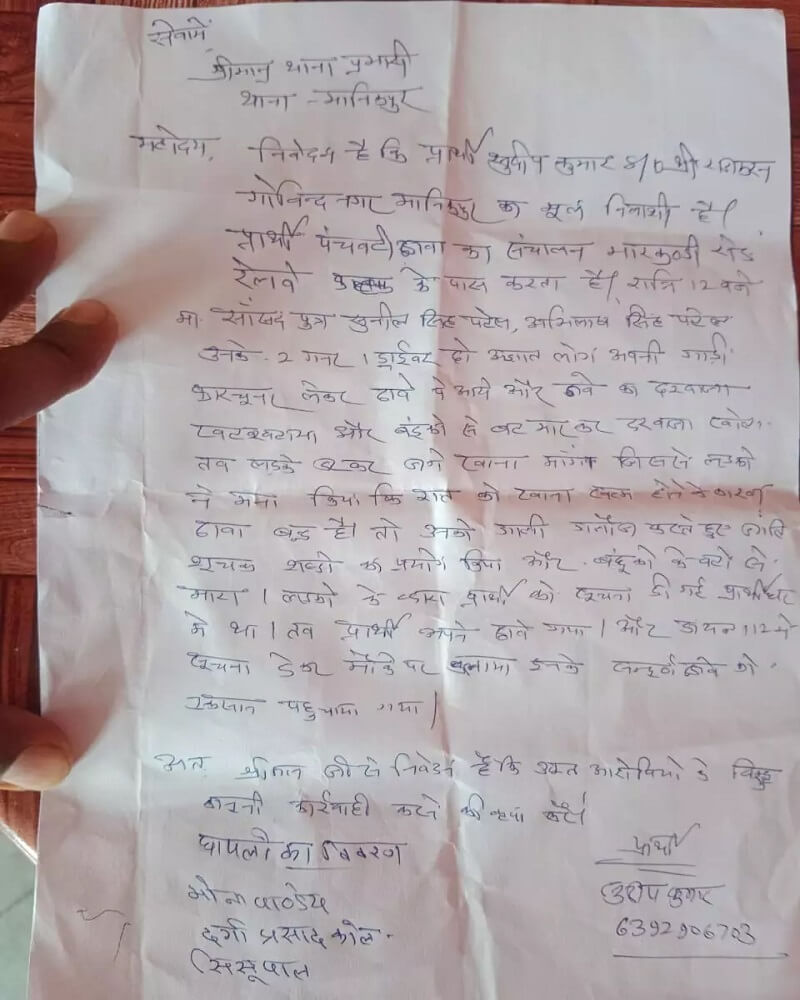 सेवामें,
श्रीमान् थाना प्रभारी
थाना - मानिकपुर
महोदय, निवेदन है कि प्रार्थी कुमार S/o श्री
गोविन्द नगर मानिकपुर का मूल निवासी है।
प्रार्थी पंचवटी ढाबा का संचालन मारकुण्डी रोड
रेलवे के पास करता है। रात्रि 12 बजे
मा. सांसद पुत्र सुनील सिंह पटेल, अभिलाष सिंह पटेल
उनके 2 गनर 1 ड्राईवर दो अज्ञात लोग अपनी गाड़ी
लेकर ढाबे पे आये और ढाबे का दरवाजा
खटखटाया और बंदूको से बट मार कर दरवाजा
तब लडके जगे खाना मांगा जिससे लडको
ने मना किया कि रात को खाना खत्म होने के कारण
ढाबा बन्द है। तो उनको गाली गलौज करते हुए जाति
शूचक शब्दो का प्रयोग किया और बंदूको के बटो से
मारा। लडको के द्वारा प्रार्थी को सूचना दी गई प्रार्थी घर
मे था। तब प्रार्थी अपने ढाबे गया। और डायल 112 मे
सूचना देकर मौके पर बुलाया इनके सम्पूर्ण ढाबे को
नुकसान पहुचाया गया।
अतः श्रीमान जी से निवेदन है कि उक्त आरोपियो के विरूद्ध
कानूनी कार्यवाही करने की कृपा करें।
घायलो का विवरण
प्रार्थी
पाण्डेय
कुमार
दुर्गा प्रसाद कोल
6392906703
सिसूपाल